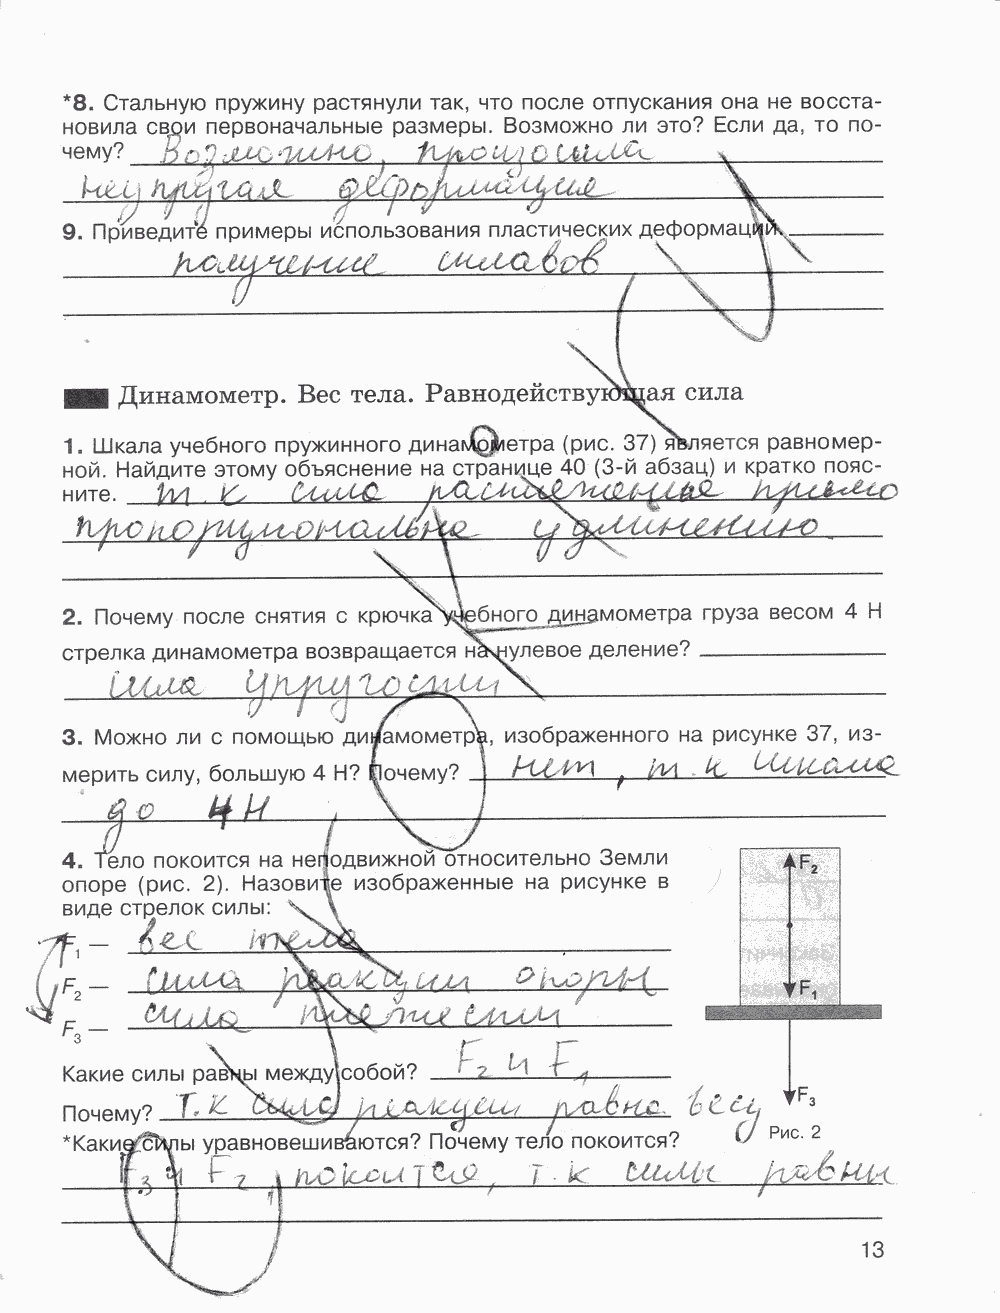 *8. Стальную пружину растянули так, что после отпускания она не восста-
новила свои первоначальные размеры. Возможно ли это? Если да, то по-
чему? Возможно, произошла
неупругая деформация
9. Приведите примеры использования пластических деформаций.
получение сплавов
Динамометр. Вес тела. Равнодействующая сила
1. Шкала учебного пружинного динамометра (рис. 37) является равномер-
ной. Найдите этому объяснение на странице 40 (3-й абзац) и кратко пояс-
ните. т.к сила растяжения прямо
пропорциональна удлинению.
2. Почему после снятия с крючка учебного динамометра груза весом 4 Н
стрелка динамометра возвращается на нулевое деление?
сила упругости
3. Можно ли с помощью динамометра, изображенного на рисунке 37, из-
мерить силу, большую 4 Н? Почему? нет, т.к шкала
до 4Н
4. Тело покоится на неподвижной относительно Земли
опоре (рис. 2). Назовите изображенные на рисунке в
виде стрелок силы:
F₁ — вес тела
F₂ — сила реакции опоры
F₃ — сила тяжести
F₂
F₁
F₃
Рис. 2
Какие силы равны между собой? F₂ и F₁
Почему? Т.к сила реакции равна весу
*Какие силы уравновешиваются? Почему тело покоится?
F₃ и F₂, покоится, т.к силы равны
13